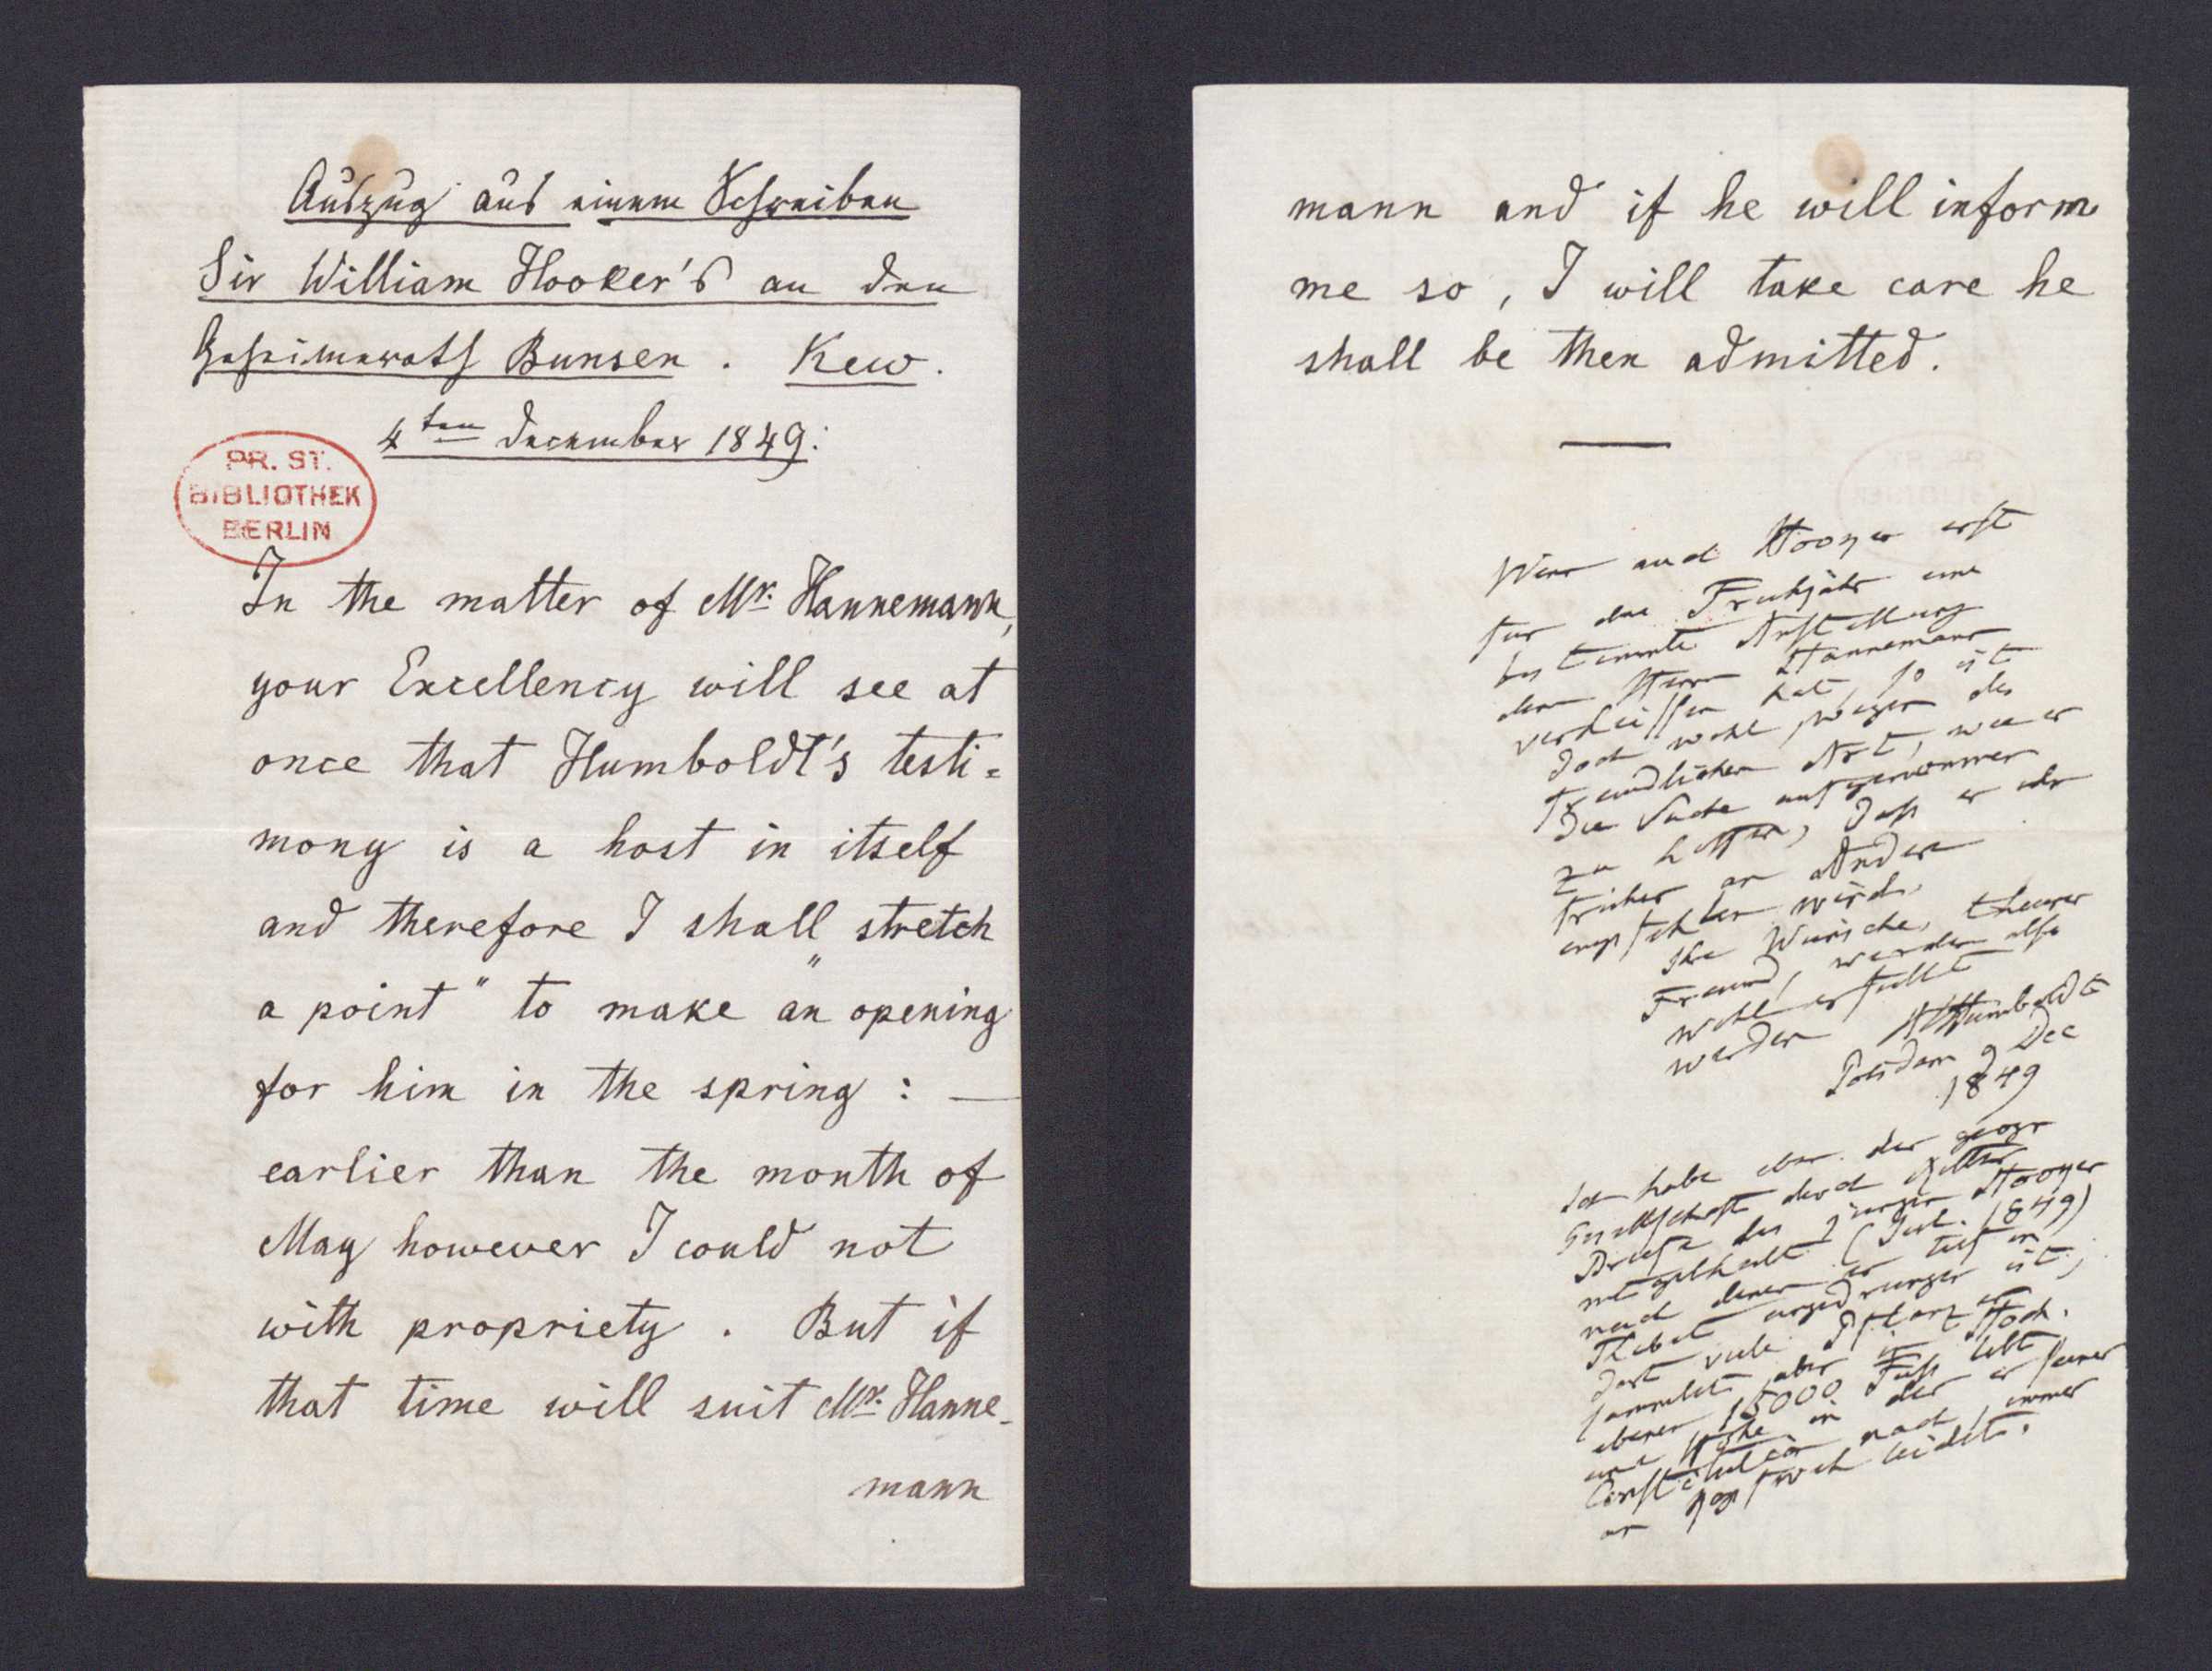 Auszug aus einem Schreiben
Sir William Hooker's an den
Geheimerath Bunsen. Kew.
4ten December 1849:
PR. ST.
BIBLIOTHEK
BERLIN
In the matter of Mr. Hannemann,
your Excellency will see at
once that Humboldt's testi=
mony is a host in itself
and therefore I shall "stretch
a point" to make an opening
for him in the spring : —
earlier than the month of
May however I could not
with propriety. But if
that time will suit Mr. Hanne-
mann
mann and if he will inform
me so, I will take care he
shall be then admitted.
Wenn auch Hooker erst
für das Frühjahr eine
bestimmte Anstellung
dem Herrn Hannemann
verheissen hat, so ist
doch wohl wegen der
freundlichen Art, wie er
die Sache aufgenommen
zu hoffen, dass er ihn
früher an Andere
empfehlen wird.
Ihre Wünsche, theurer
Freund, werden also
wohl erfüllt
werden AHumboldt
Potsdam 9 Dec
1849
Ich habe eben der geogr
Gesellschaft durch Ritter
Briefe des jungen Hooker
mitgetheilt (Jul. 1849)
nach denen er tief in
Tibet eingedrungen ist,
dort viele Pflanzen
sammelt, aber in Hoch.
ebenen 15000 Fuss lebt
eine Höhe in der er seiner
Constitution nach immer
an Kopfweh leidet.